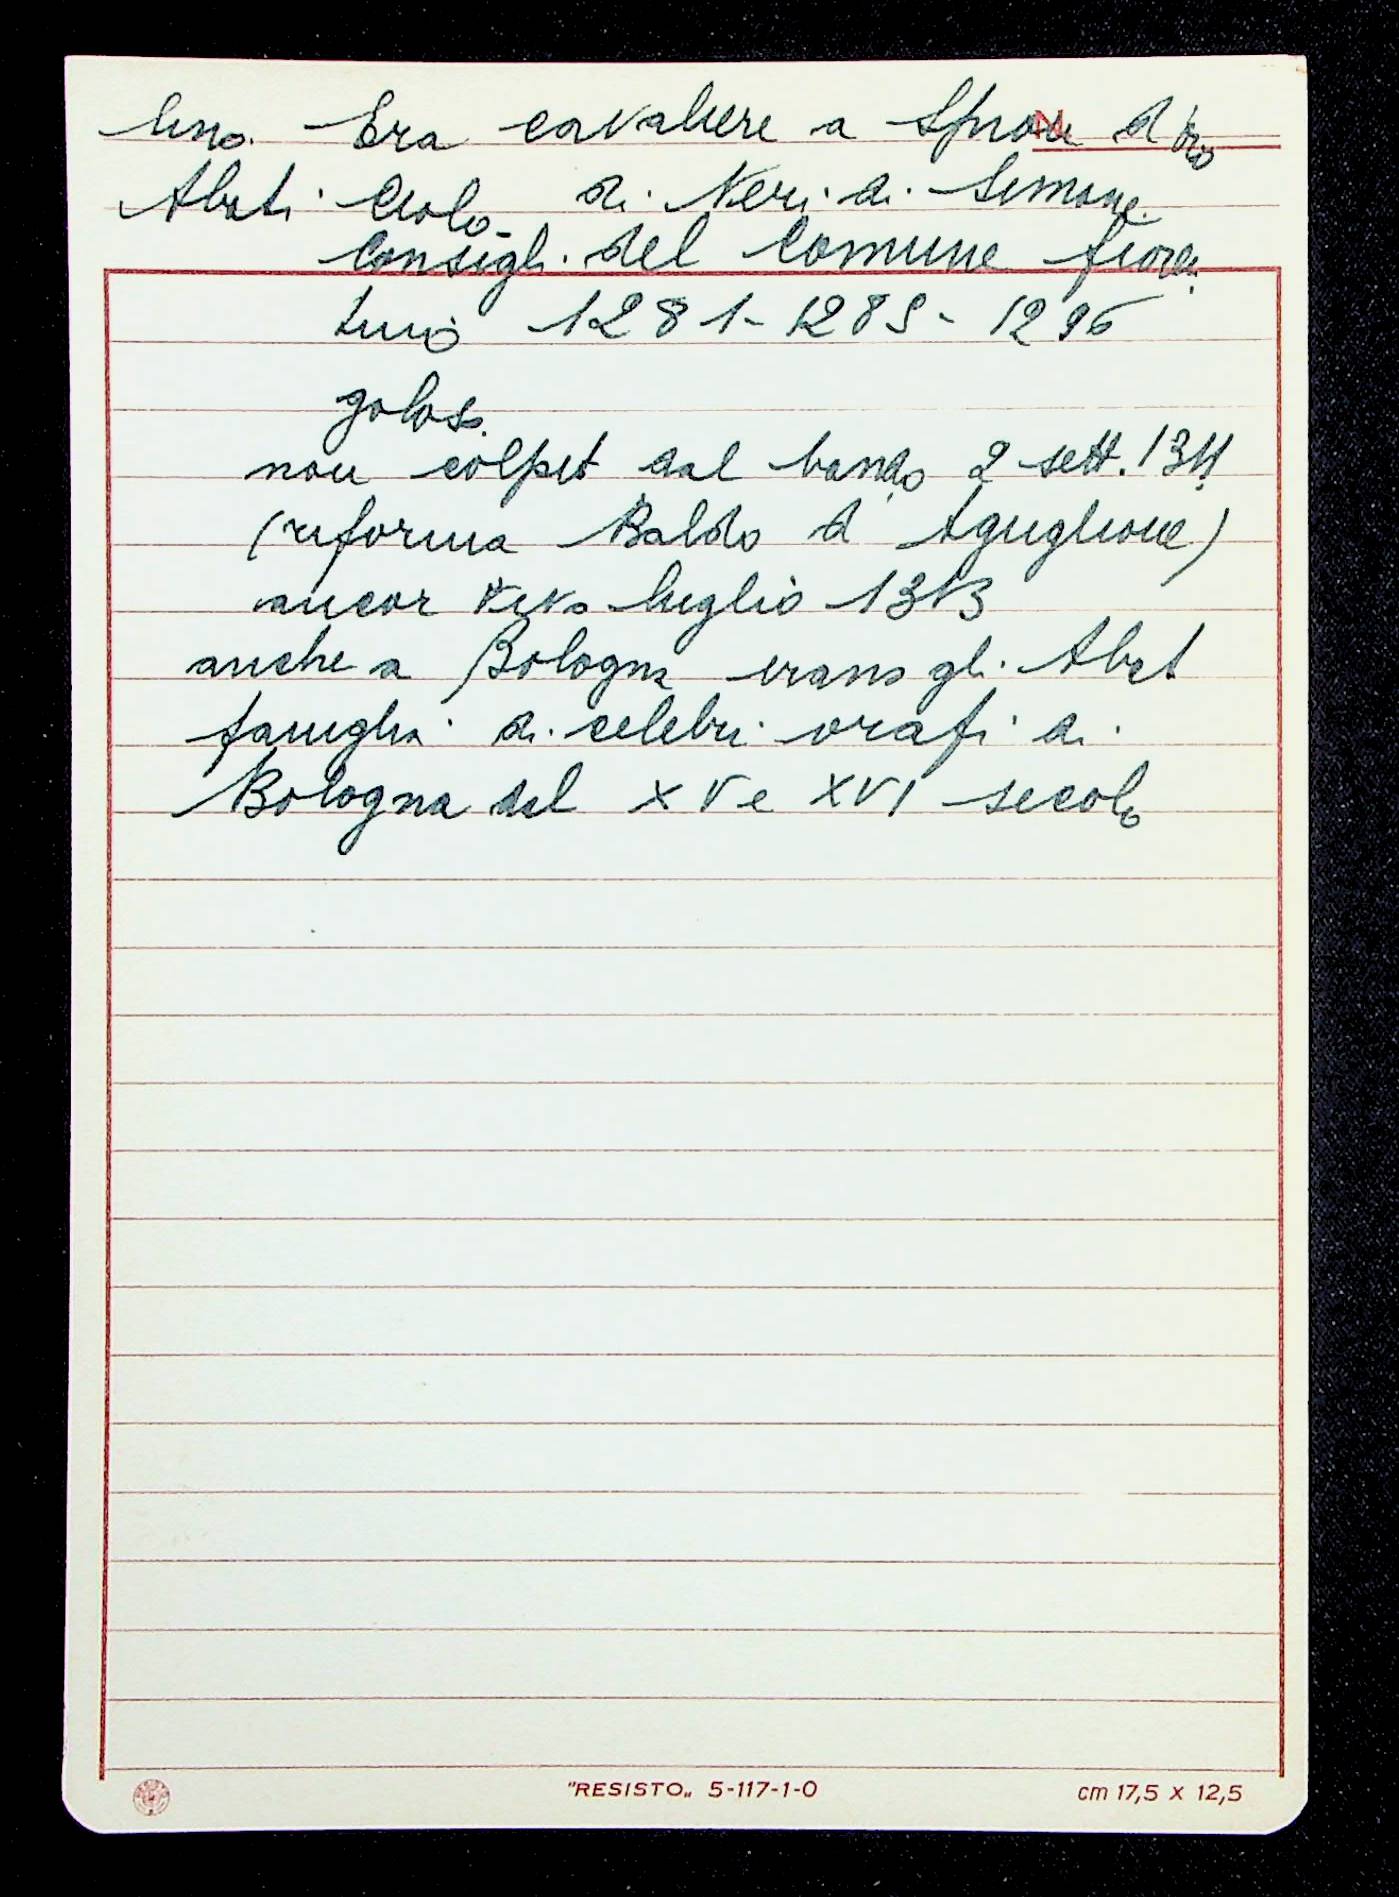 lino. Era cavaliere a Spron d'oro
Abati Ciolo di Neri di Simone
Consigli del Comune fioren
tino 1281-1285-1296
goloso
non colpito dal bando 2 sett. 1311
(riforma Baldo d'Aguglione)
ancor vivo luglio 1313
anche a Bologna erano gli Abati
famiglia di celebri orafi di
Bologna del XV e XVI secolo
"RESISTO„ 5-117-1-0 cm 17,5 x 12,5